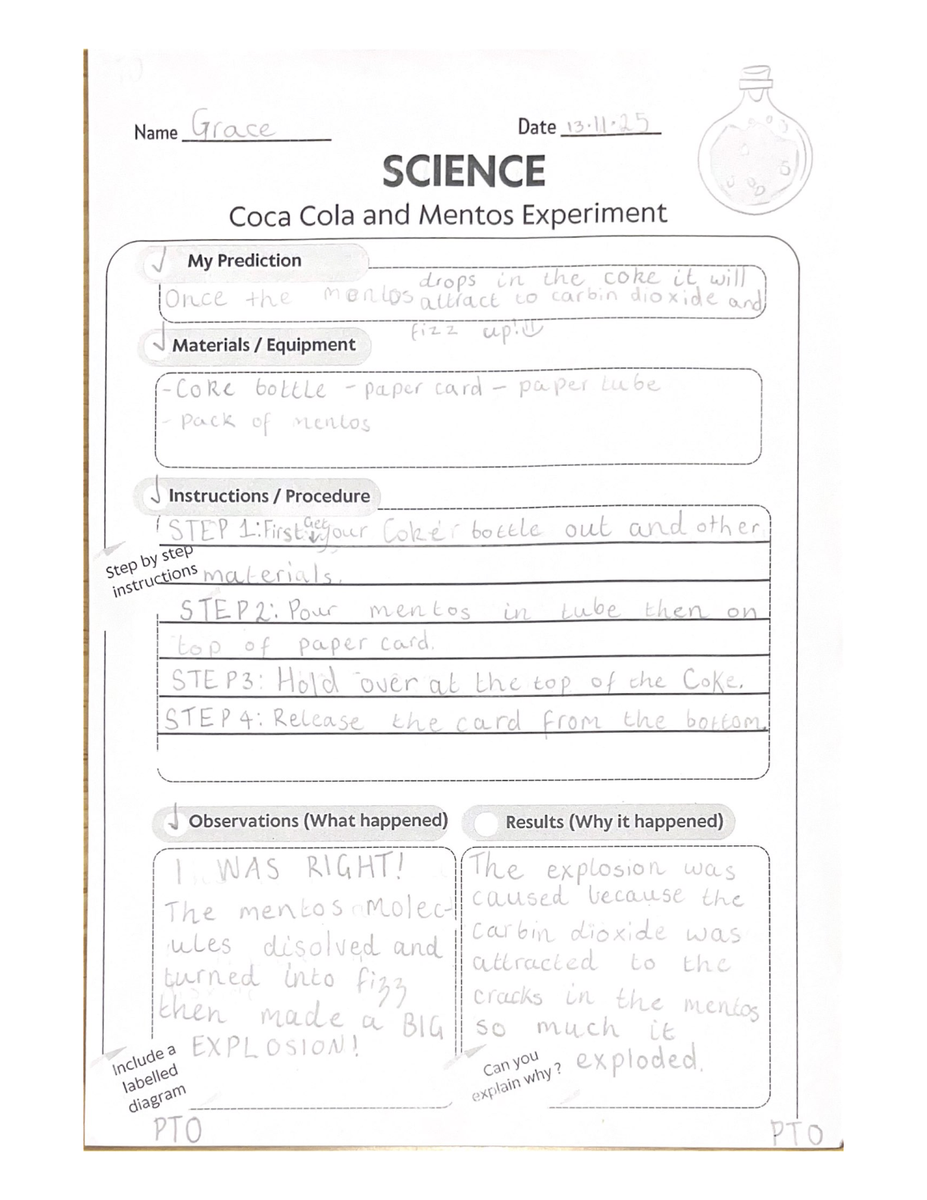 Name Grace
Date 13.11.25
SCIENCE
Coca Cola and Mentos Experiment
My Prediction
Once the mentos drops in the coke it will
attract to carbin dioxide and
fizz up!
Materials / Equipment
- Coke bottle - paper card - paper tube
- Pack of mentos
Instructions / Procedure
STEP 1: First get your Coke bottle out and other
materials.
Step by step
instructions
STEP 2: Pour mentos in tube then on
top of paper card.
STEP 3: Hold over at the top of the Coke.
STEP 4: Release the card from the bottom.
Observations (What happened)
I WAS RIGHT!
The mentos molec-
ules disolved and
turned into fizz
then made a BIG
EXPLOSION!
Include a
labelled
diagram
PTO
Results (Why it happened)
The explosion was
caused because the
carbin dioxide was
attracted to the
cracks in the mentos
so much it
exploded.
Can you
explain why?
PTO